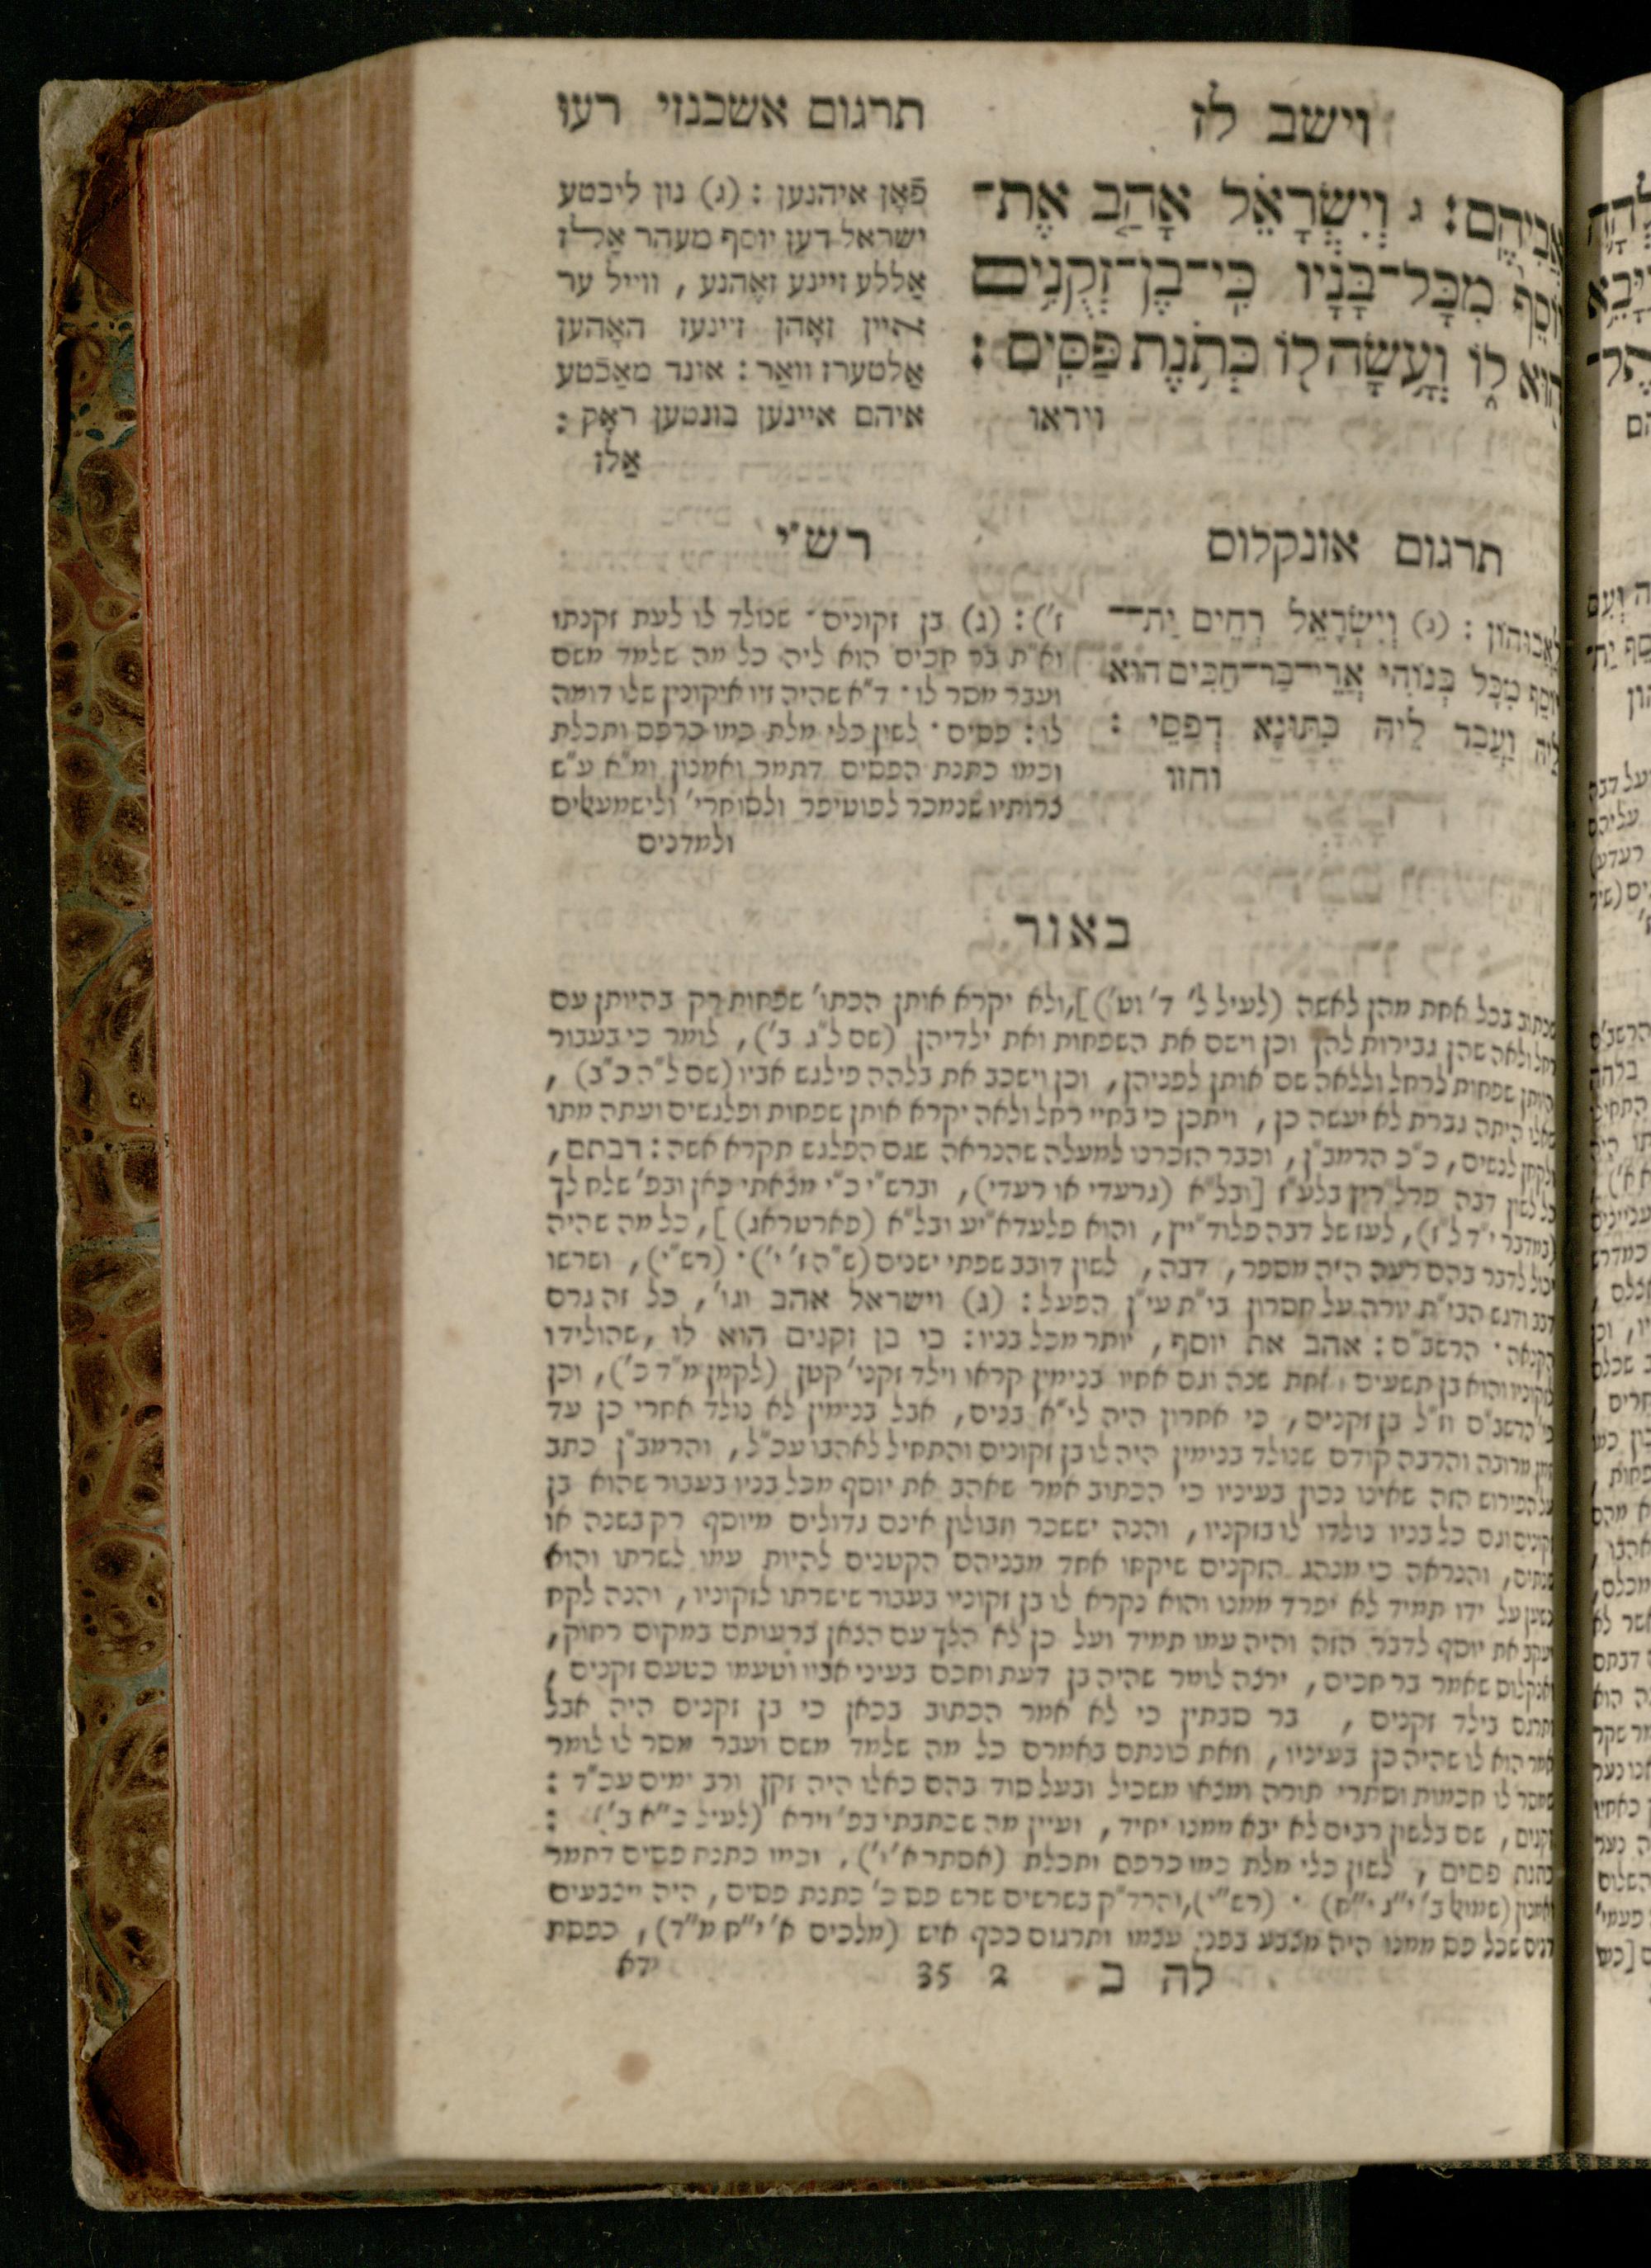 וישב לז
תרגום אשכנזי רעו
אֲבִיהֶֽם׃ ג וְיִשְׂרָאֵ֗ל אָהַ֤ב אֶת־
יוֹסֵף֙ מִכׇּל־בָּנָ֔יו כִּֽי־בֶן־זְקֻנִ֥ים
ה֖וּא ל֑וֹ וְעָ֥שָׂה ל֖וֹ כְּתֹ֥נֶת פַּסִּֽים׃
ויראו
פֿאָן איהנען : (ג) נון ליבטע
ישראל דען יוסף מעהר אַלז
אַללע זיינע זאֶהנע , ווייל ער
איין זאָהן זיינעז האָהען
אַלטערז וואַר : אונד מאַכֿטע
איהם איינען בונטען ראָק :
אַלז
תרגום אונקלוס
לַאֲבוּהוֹן : (ג) וְיִשְׂרָאֵל רְחֵים יַת־
יוֹסֵף מִכָּל בְּנוֹהִי אֲרֵי־בַר־חַכִּים הוּא
לֵיהּ וַעֲבַד לֵיהּ כִּתּוּנָא דְפַסֵּי :
וחזו
רש״י
ז׳) : (ג) בן זקונים · שנולד לו לעת זקנתו
וא״ת בר חכים הוא ליה כל מה שלמד משם
ועבר מסר לו · ד״א שהיה זיו איקונין שלו דומה
לו : פסים · לשון כלי מלת כמו כרפס ותכלת
וכמו כתנת הפסים דתמר ואמנון ומ״א ע״ש
צרותיו שנמכר לפוטיפר ולסוחרי׳ ולישמעאלים
ולמדנים
באור
מכתוב בכל אחת מהן לאשה (לעיל ל׳ ד׳ וט׳)], ולא יקרא אותן הכתו׳ שפחות רק בהיותן עם
רחל ולאה שהן גבירות להן וכן וישם את השפחות ואת ילדיהן (שם ל״ג ב׳), לומר כי בעבור
היותן שפחות לרחל וללאה שם אותן לפניהן, וכן וישכב את בלהה פילגש אביו (שם ל״ה כ״ב) ,
שאלו היתה גברת לא יעשה כן , ויתכן כי בחיי רחל ולאה יקרא אותן שפחות ופלגשים ועתה מתו
ולקחן לנשים, כ״כ הרמב״ן, וכבר הזכרנו למעלה שהנראה שגם הפלגש תקרא אשה : דבתם ,
כל לשון דבה פרל״רין בלע״ז [ובל״א (גרעדי או רעדי), וברש״י כ״י מצאתי כאן ובפ׳ שלח לך
(במדבר י״ד ל״ז), לעז של דבה פלוד״יין, והוא פלעדא״יע ובל״א (פארטראג)], כל מה שהיה
יכול לדבר בהם רעה היה מספר, דבה, לשון דובב שפתי ישנים (ש״ה ז׳ י׳) · (רש״י), ושרשו
דבב ודגש הבי״ת יורה על חסרון בי״ת עי״ן הפעל : (ג) וישראל אהב וגו׳, כל זה גרם
הקנאה · הרשב״ם : אהב את יוסף, יותר מכל בניו : כי בן זקנים הוא לו , שהולידו
לזקוניו והוא בן תשעים ואחת שנה וגם אחיו בנימין קראו וילד זקני׳ קטן (לקמן מ״ד כ׳), וכן
כי׳ הרשב״ם וז״ל בן זקנים, כי אחרון היה לי״א בנים, אבל בנימין לא נולד אחרי כן עד
זמן מרובה והרבה קודם שנולד בנימין היה לו בן זקונים והתחיל לאהבו עכ״ל, והרמב״ן כתב
על הפירוש הזה שאינו נכון בעיניו כי הכתוב אמר שאהב את יוסף מכל בניו בעבור שהוא בן
זקנים וגם כל בניו נולדו לו בזקניו, והנה יששכר וזבולון אינם גדולים מיוסף רק בשנה או
שנתים, והנראה כי מנהג הזקנים שיקחו אחד מבניהם הקטנים להיות עמו לשרתו והוא
נשען על ידו תמיד לא יפרד ממנו והוא נקרא לו בן זקוניו בעבור שישרתו לזקוניו, והנה לקח
יעקב את יוסף לדבר הזה והיה עמו תמיד ועל כן לא הלך עם הצאן ברעותם במקום רחוק,
ואנקלוס שאמר בר חכים, ירצה לומר שהיה בן דעת וחכם בעיני אביו וטעמו כטעם זקנים ,
ותרגם בילד זקנים , בר סבתין כי לא אמר הכתוב בכאן כי בן זקנים היה אבל
אמר הוא לו שהיה כן בעיניו, וזאת כונתם באמרם כל מה שלמד משם ועבר מסר לו לומר
שמסר לו חכמות וסתרי תורה ומצאו משכיל ובעל סוד בהם כאלו היה זקן ורב ימים עכ״ד :
זקנים, שם בלשון רבים לא יבא ממנו יחיד, ועיין מה שכתבתי בפ׳ וירא (לעיל כ״א ב׳) :
כתנת פסים , לשון כלי מלת כמו כרפס ותכלת (אסתר א׳ ו׳), וכמו כתנת פסים דתמר
ואמנון (שמואל ב׳ י״ג י״ח) · (רש״י), והרד״ק בשרשים שרש פס כ׳ כתנת פסים, היה מצבעים
רבים שכל פס ממנו היה מצבע בפני עצמו ותרגום ככף איש (מלכים א׳ י״ח מ״ד), כפסת
לה ב 2 35
ידא